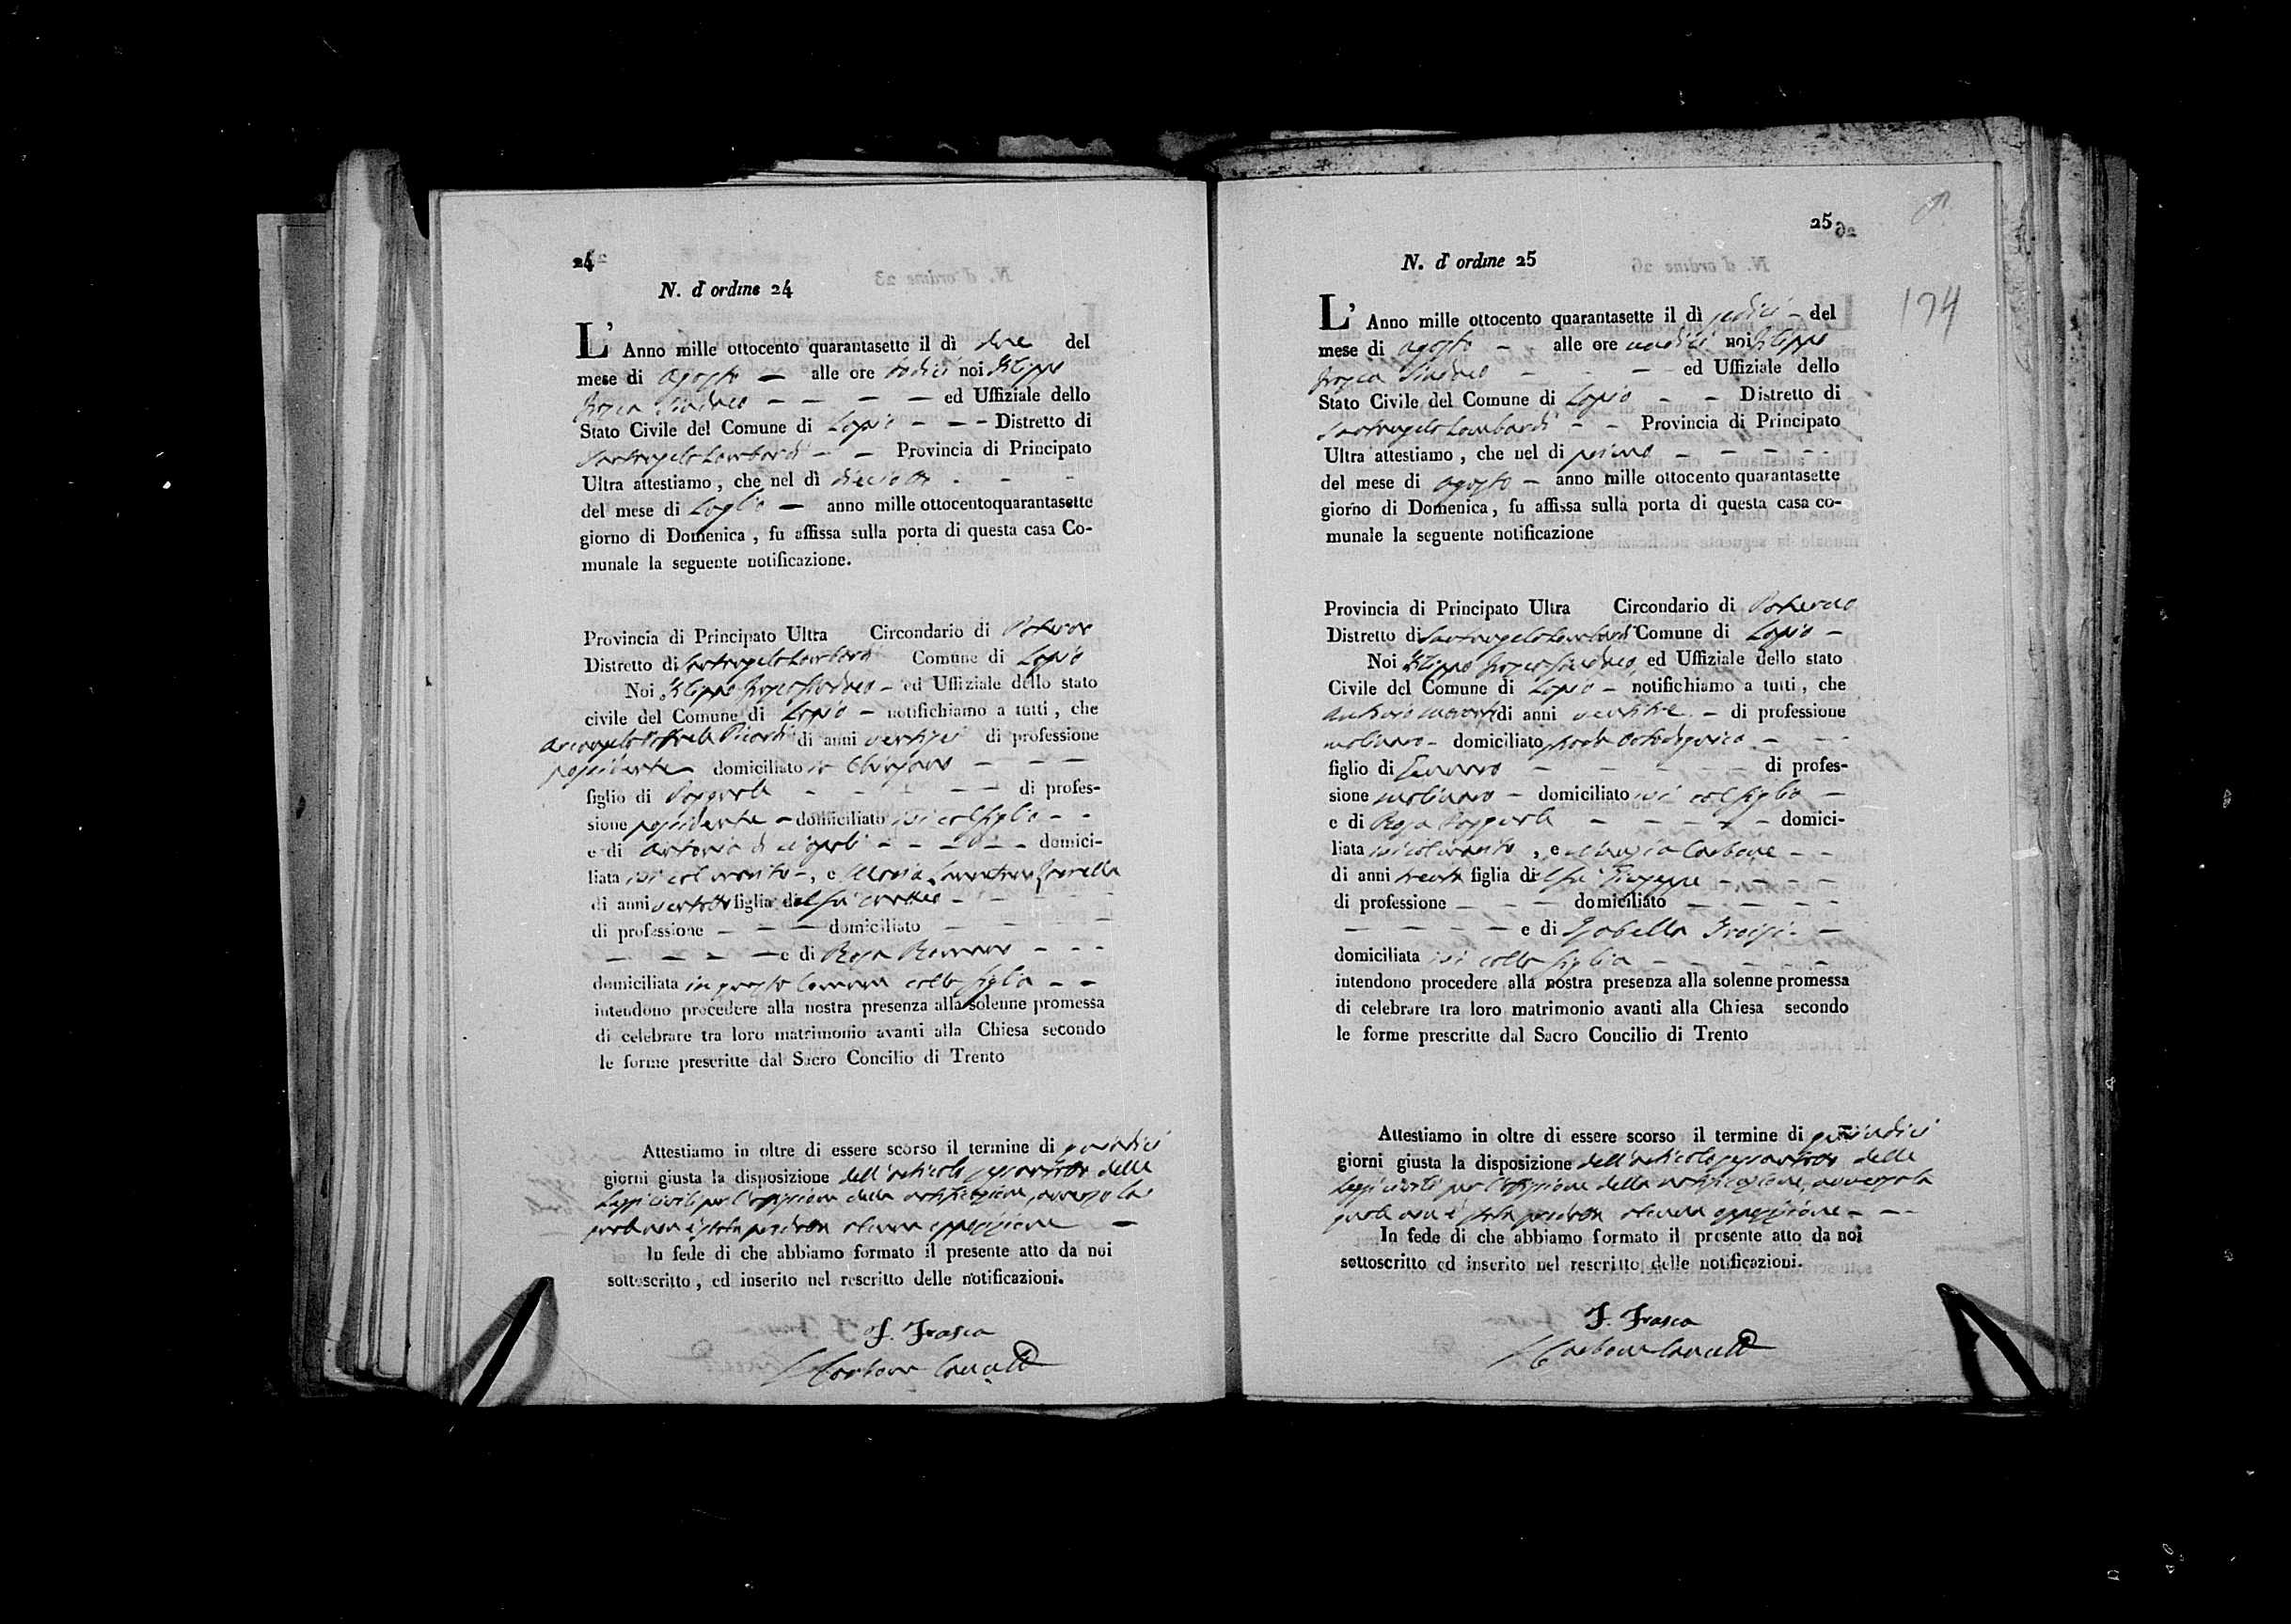 24
N. d'ordine 24
L' Anno mille ottocento quarantasette il dì due del
mese di Agosto — alle ore dodici noi Filippo
Frasca Sindaco — — — — ed Uffiziale dello
Stato Civile del Comune di Lapio - - - Distretto di
Santangelo Lombardi - — Provincia di Principato
Ultra attestiamo, che nel dì dieciotto - - -
del mese di Luglio — anno mille ottocentoquarantasette
giorno di Domenica, fu affissa sulla porta di questa casa Co-
munale la seguente notificazione.
Provincia di Principato Ultra Circondario di
Distretto di Santangelo Lombardi Comune di Lapio
Noi Filippo Frasca Sindaco - ed Uffiziale dello stato
civile del Comune di Lapio — notifichiamo a tutti, che
Arcangelo Picardi di anni di professione
possidente domiciliato in Chiusano — — —
figlio di Pasquale - - - — — di profes-
sione possidente — domiciliato ivi col figlio - -
e di Antonia di Napoli - - — — - domici-
liata ivi col marito -, e Maria
di anni ventotto figlia del fu - - - - -
di professione — — — domiciliato — — — —
— — — — e di Rosa Romano - - -
domiciliata in questo Comune colla figlia - —
intendono procedere alla nostra presenza alla solenne promessa
di celebrare tra loro matrimonio avanti alla Chiesa secondo
le forme prescritte dal Sacro Concilio di Trento
Attestiamo in oltre di essere scorso il termine di quindici
giorni giusta la disposizione dell'articolo delle
Leggi Civili per l'affissione della notificazione, avverso la
quale non è stata prodotta alcuna opposizione —
In fede di che abbiamo formato il presente atto da noi
sottoscritto, ed inserito nel rescritto delle notificazioni.
F. Frasca
25
N. d'ordine 25
194
L' Anno mille ottocento quarantasette il dì sedici - del
mese di Agosto - alle ore undici noi Filippo
Frasca Sindaco - - — - ed Uffiziale dello
Stato Civile del Comune di Lapio - — Distretto di
Santangelo Lombardi - - Provincia di Principato
Ultra attestiamo, che nel di primo — — — - -
del mese di Agosto — anno mille ottocento quarantasette
giorno di Domenica, fu affissa sulla porta di questa casa co-
munale la seguente notificazione
Provincia di Principato Ultra Circondario di
Distretto di Santangelo Lombardi Comune di Lapio —
Noi Filippo Frasca Sindaco, ed Uffiziale dello stato
Civile del Comune di Lapio — notifichiamo a tutti, che
Antonio di anni - di professione
molinaro - domiciliato - - -
figlio di Gennaro — — — — — di profes-
sione molinaro — domiciliato ivi col figlio —
e di Rosa Pasquale - - - - - domici-
liata ivi col marito, e Carbone - -
di anni trenta figlia del fu Giuseppe - — — —
di professione — — — domiciliato — — — —
— — — — e di Isabella —
domiciliata ivi colla figlia - — — — —
intendono procedere alla nostra presenza alla solenne promessa
di celebrare tra loro matrimonio avanti alla Chiesa secondo
le forme prescritte dal Sacro Concilio di Trento
Attestiamo in oltre di essere scorso il termine di quindici
giorni giusta la disposizione dell'articolo delle
Leggi Civili per l'affissione della notificazione, avverso la
quale non è stata prodotta alcuna opposizione - - -
In fede di che abbiamo formato il presente atto da noi
sottoscritto ed inserito nel rescritto delle notificazioni.
F. Frasca